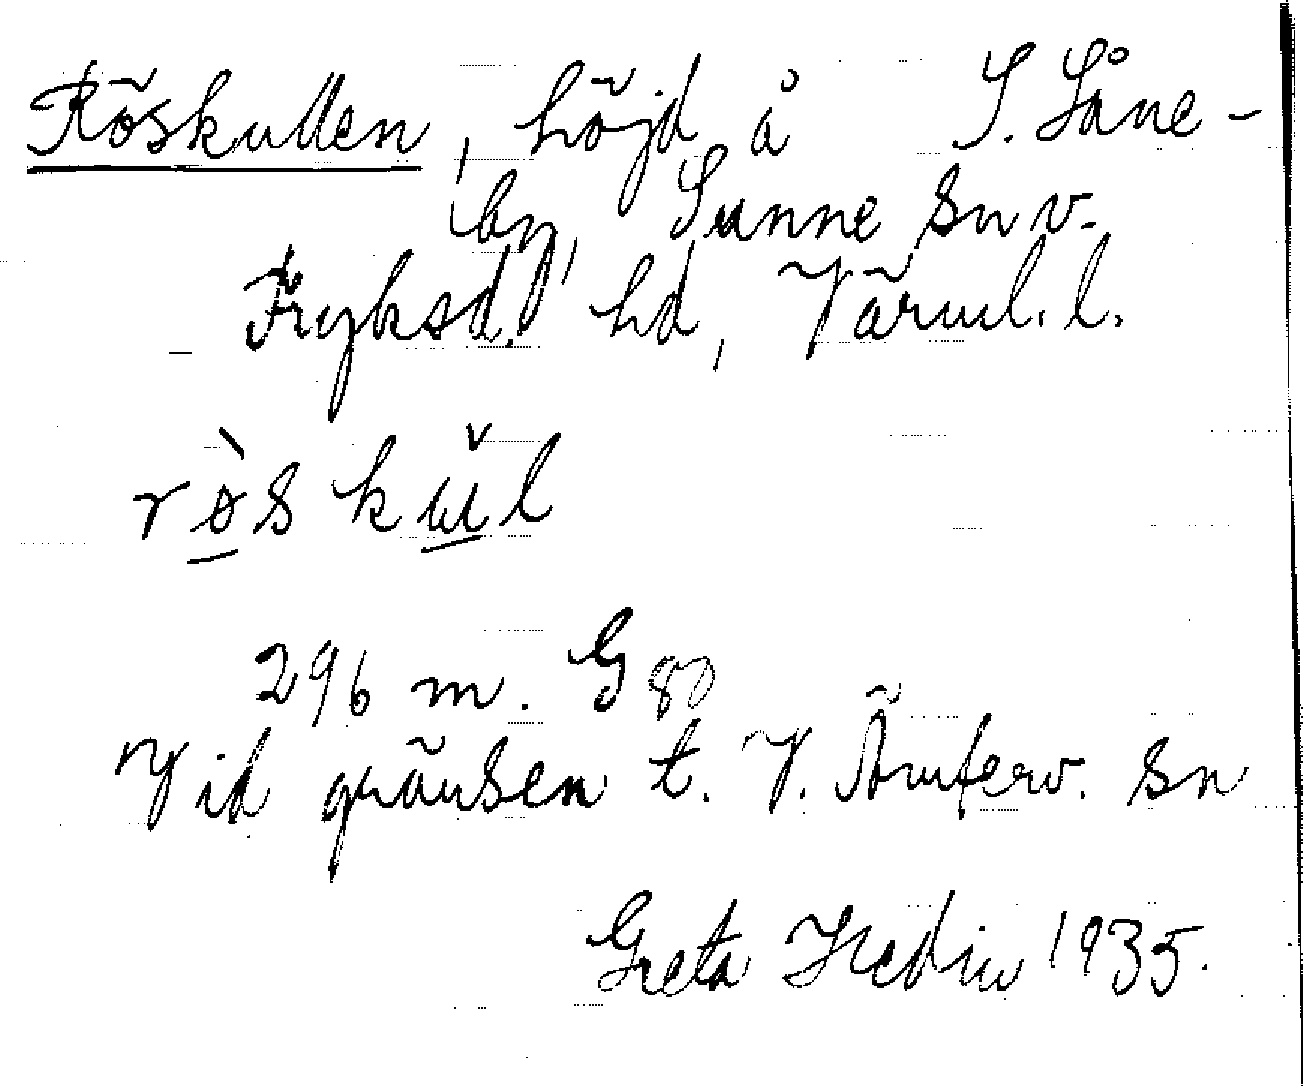 Röskullen, höjd å S. Låne-
by, Sunne sn v.
Fryksd. hd, Värml. l.
rø̀skŭl
296 m. G 80
Vid gränsen t. V. Ämterv. sn
Greta Hedin 1935.